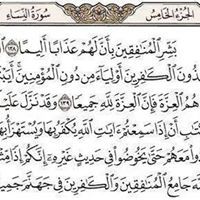 الجُزْءُ الخَامِسُ سُورَةُ النِّسَاءِ
بَشِّرِ ٱلْمُنَٰفِقِينَ بِأَنَّ لَهُمْ عَذَابًا أَلِيمًا ١٣٨
ذُونَ ٱلْكَٰفِرِينَ أَوْلِيَآءَ مِن دُونِ ٱلْمُؤْمِنِينَ أَيَبْتَ
هُمُ ٱلْعِزَّةَ فَإِنَّ ٱلْعِزَّةَ لِلَّهِ جَمِيعًا ١٣٩ وَقَدْ نَزَّلَ عَلَيْ
تَٰبِ أَنْ إِذَا سَمِعْتُمْ ءَايَٰتِ ٱللَّهِ يُكْفَرُ بِهَا وَيُسْتَهْزَأُ بِهَا
دُوا۟ مَعَهُمْ حَتَّىٰ يَخُوضُوا۟ فِى حَدِيثٍ غَيْرِهِۦٓ إِنَّكُمْ إِذًا مِّثْ
للَّهَ جَامِعُ ٱلْمُنَٰفِقِينَ وَٱلْكَٰفِرِينَ فِى جَهَنَّمَ جَمِي